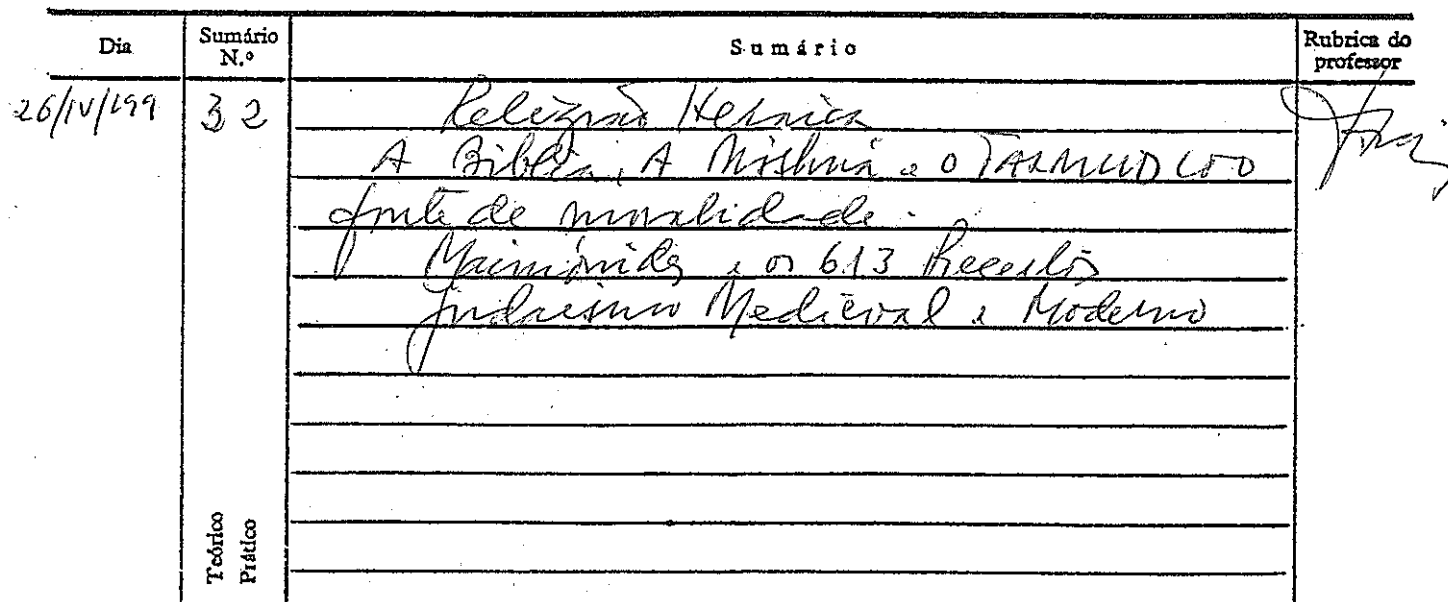 Dia Sumário N.º Sumário Rubrica do professor
26/IV/199 32 Religião Hebraica
A Bíblia, A Mishná e O TALMUD COO
fonte de moralidade.
Maimónides e os 613 Preceitos
Judaísmo Medieval e Moderno
Teórico
Prático